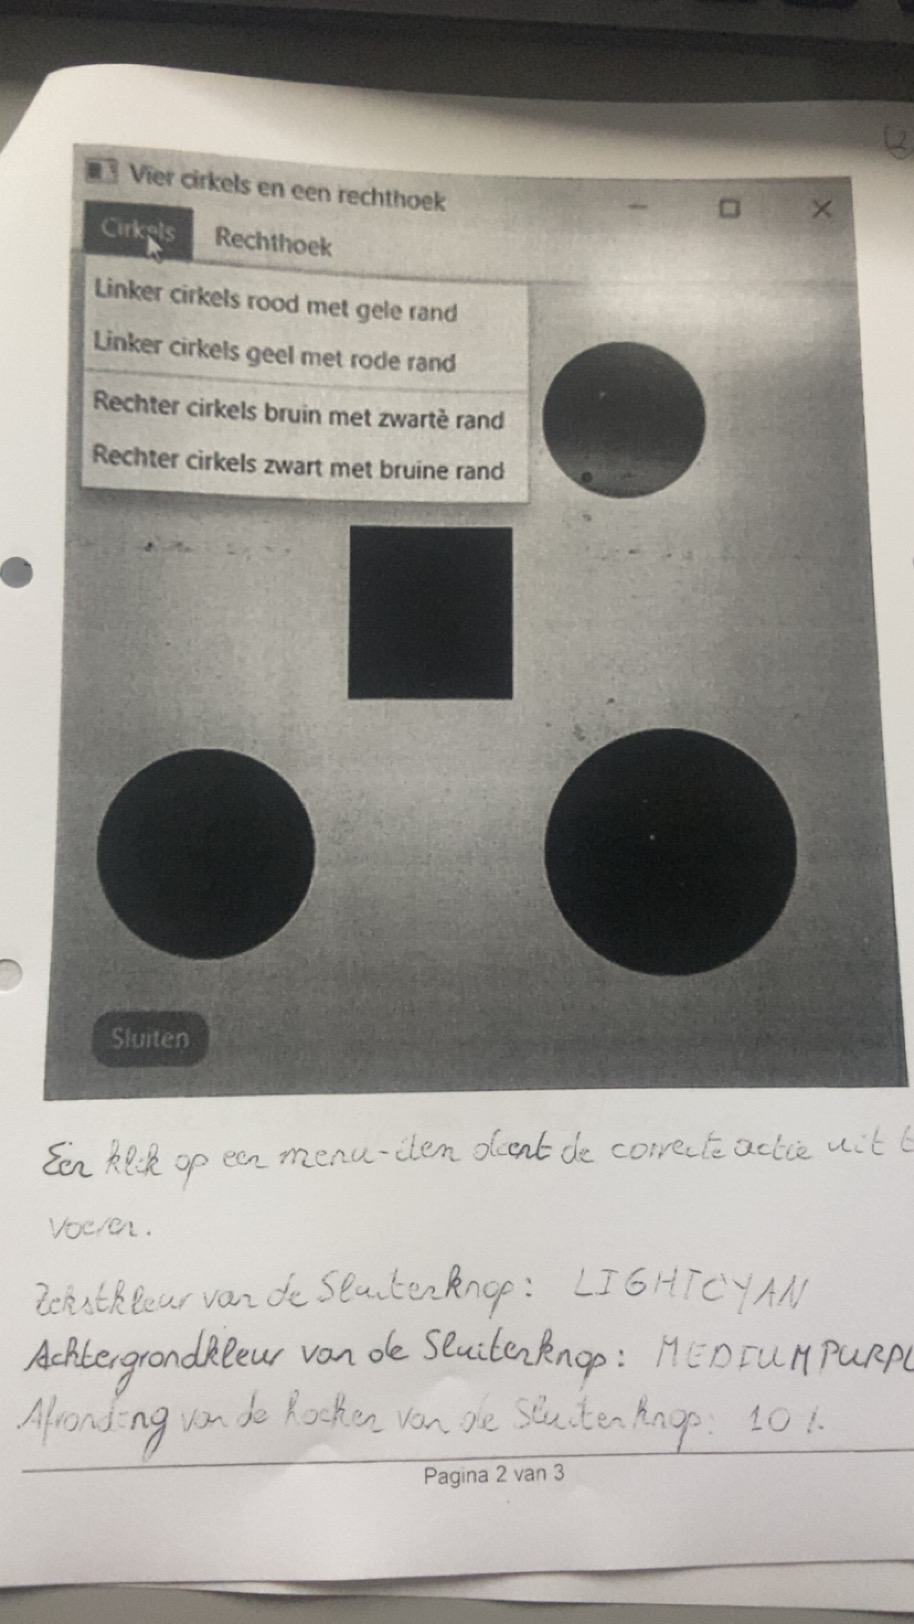 Vier cirkels en een rechthoek
Cirkels Rechthoek
Linker cirkels rood met gele rand
Linker cirkels geel met rode rand
Rechter cirkels bruin met zwarte rand
Rechter cirkels zwart met bruine rand
Sluiten
Een klik op een menu-item dient de correcte actie uit t
voeren.
Tekstkleur van de Sluitenknop: LIGHTCYAN
Achtergrondkleur van de Sluitenknop: MEDIUMPURPL
Afronding van de hoeken van de Sluitenknop: 10%
Pagina 2 van 3